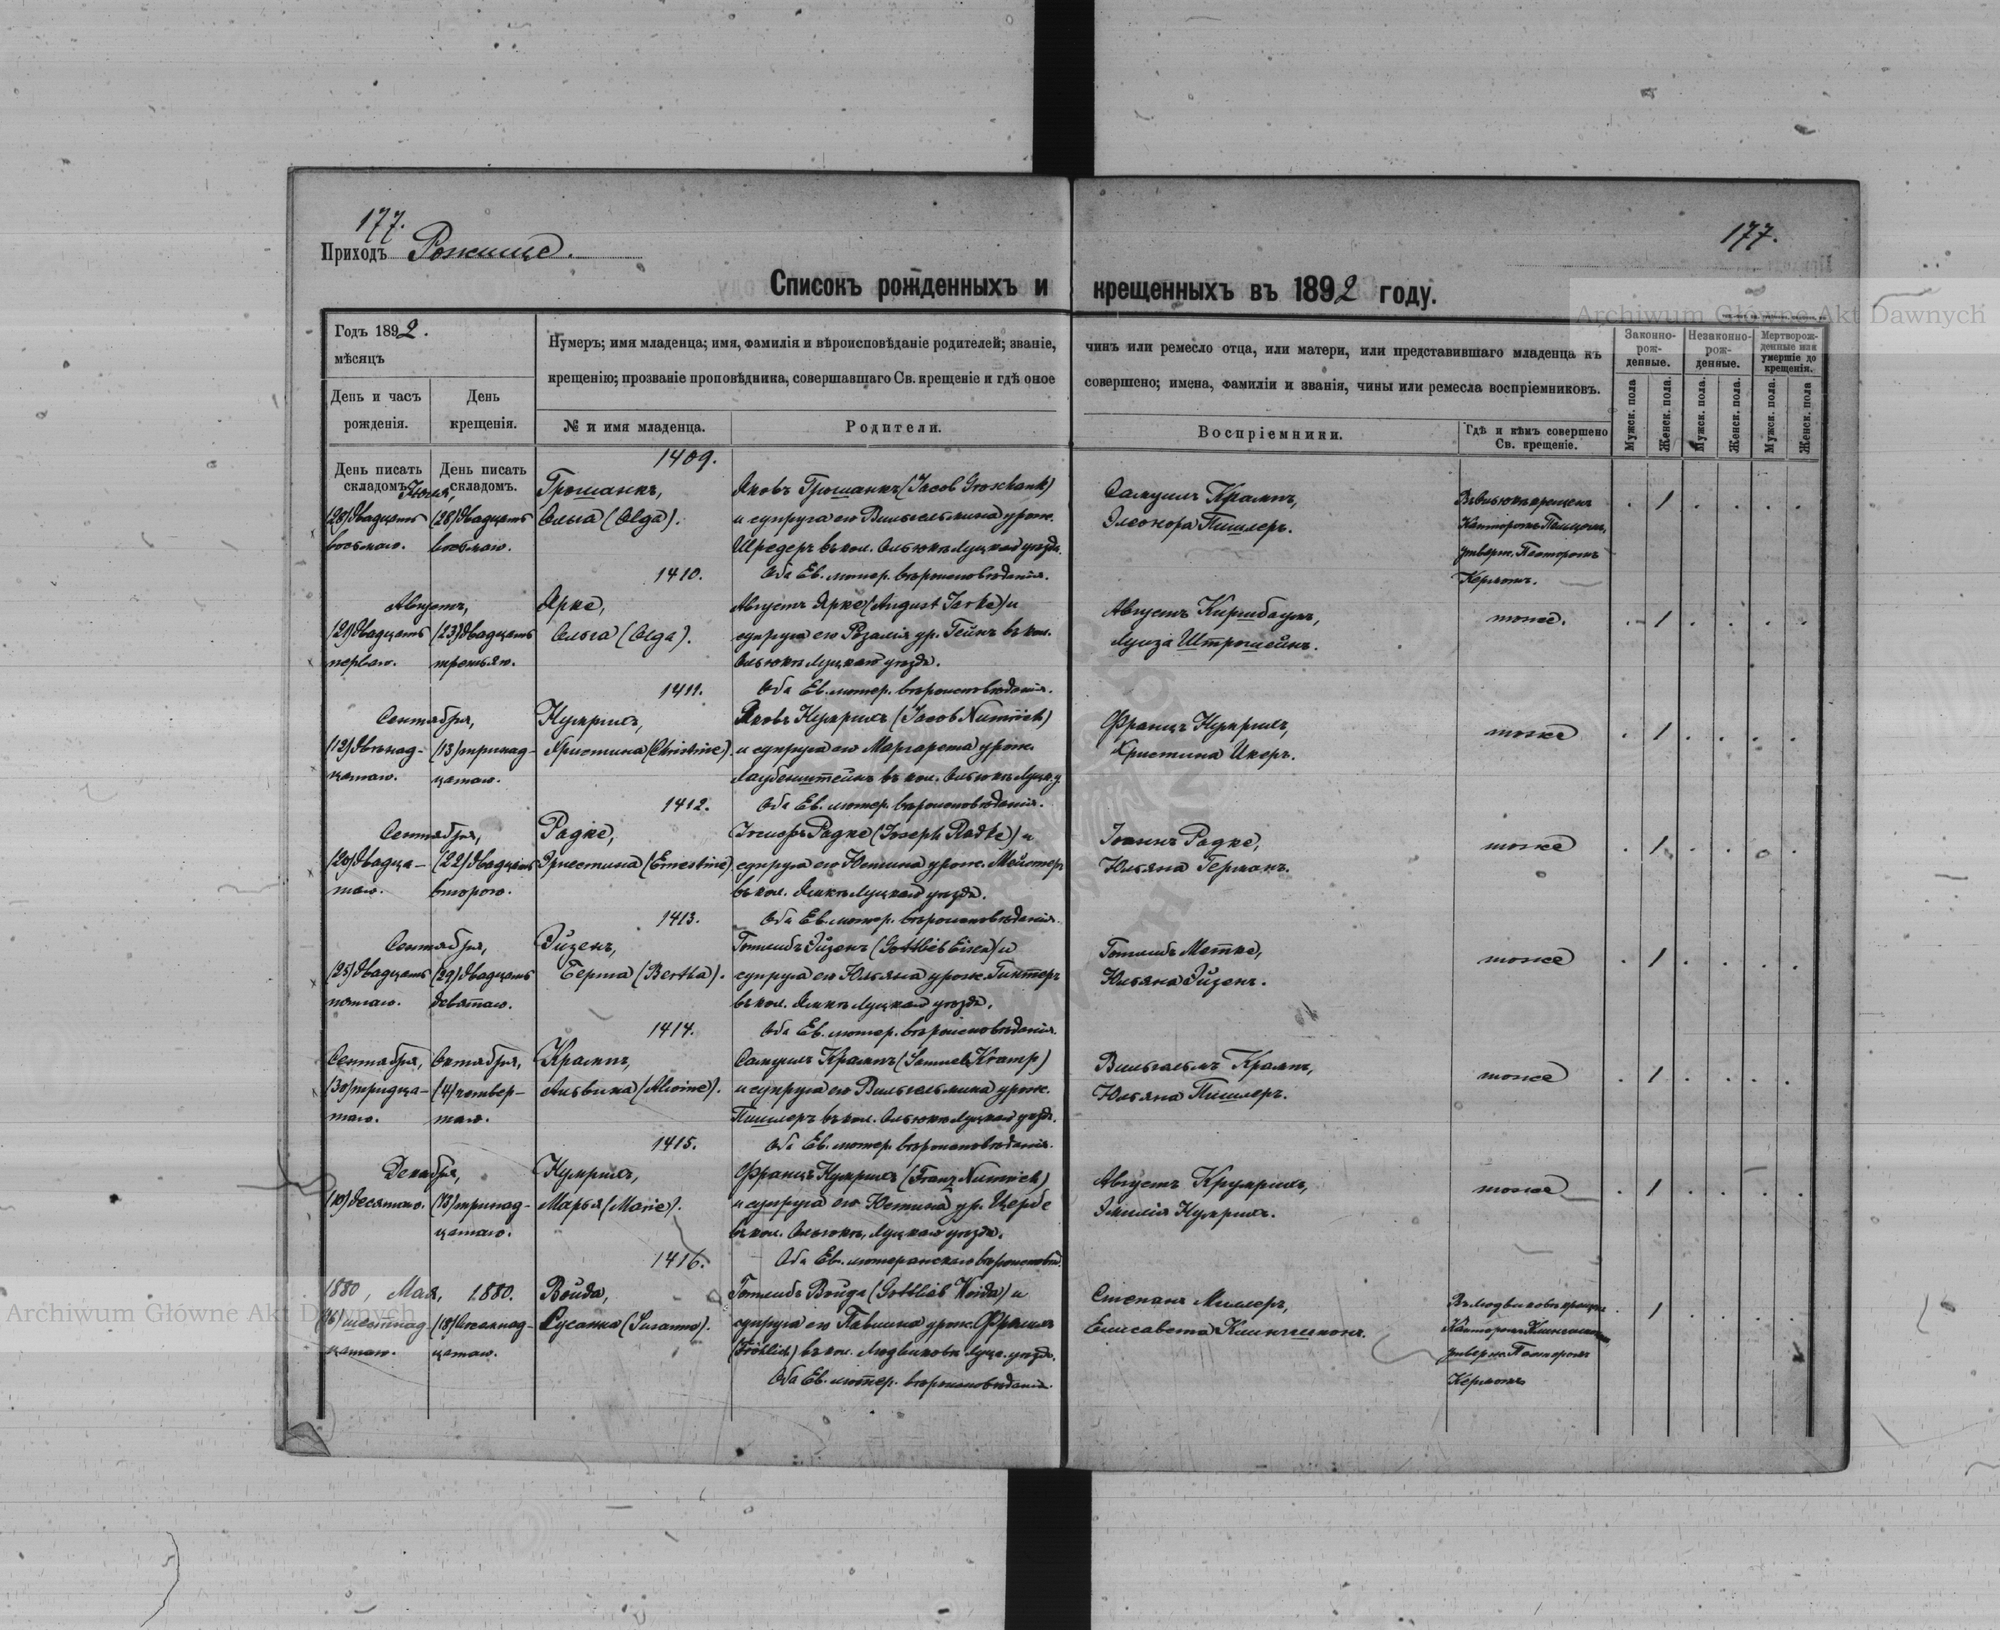 177.
177.
Приходъ Рожище.
Списокъ рожденныхъ и крещенныхъ въ 1892 году.
Archiwum Główne Akt Dawnych
Годъ 1892.
мѣсяцъ
День и часъ рожденія.
День крещенія.
Нумеръ; имя младенца; имя, фамилія и вѣроисповѣданіе родителей; званіе, чинъ или ремесло отца, или матери, или представившаго младенца къ
крещенію; прозваніе проповѣдника, совершавшаго Св. крещеніе и гдѣ оное совершено; имена, фамиліи и званія, чины или ремесла воспріемниковъ.
№ и имя младенца.
Родители.
Воспріемники.
Гдѣ и кѣмъ совершено Св. крещеніе.
Законно-рож-денные.
Незаконно-рож-денные.
Мертворож-денные или умершіе до крещенія.
Мужск. пола
Женск. пола.
Мужск. пола.
Женск. пола.
Мужск. пола
Женск. пола
День писать складомъ.
День писать складомъ.
1409.
Іюля,
(28) двадцать восьмаго.
(28) двадцать восьмаго.
Грошанкъ,
Ольга (Olga).
Яковъ Грошанкъ (Jacob Groschank)
и супруга его Вильгельмина урож.
Шредеръ въ кол. Ольюкъ Луцкаго уѣзда.
Оба Ев. лютер. вѣроисповѣданія.
Самуилъ Крампъ,
Элеонора Пишлеръ.
утверж. Пасторомъ
Керномъ.
. 1 . . . .
1410.
Августъ,
(21) двадцать перваго.
(23) двадцать третьяго.
Ярке,
Ольга (Olga).
Августъ Ярке (August Jarke) и
супруга его Розалія ур. Гейнъ въ кол.
Ольюкъ Луцкаго уѣзда.
Оба Ев. лютер. вѣроисповѣданія.
Августъ Киршбаумъ,
Луиза Штрошейнъ.
тоже.
. 1 . . . .
1411.
Сентября,
(12) двѣнад-цатаго.
(13) тринад-цатаго.
Нумрихъ,
Христина (Christine).
Яковъ Нумрихъ (Jacob Numrich)
и супруга его Маргарета урож.
Лауденштейнъ въ кол. Ольюкъ Луцк. у.
Оба Ев. лютер. вѣроисповѣданія.
Францъ Нумрихъ,
Христина Икеръ.
тоже
. 1 . . . .
1412.
Сентября,
(20) двадца-таго.
(22) двадцать втораго.
Радке,
Эрнестина (Ernestine).
Іосифъ Радке (Joseph Radke) и
супруга его Юстина урож. Мейстеръ
въ кол. Яликъ Луцкаго уѣзда.
Оба Ев. лютер. вѣроисповѣданія.
Іоаннъ Радке,
Юльяна Германъ.
тоже
. 1 . . . .
1413.
Сентября,
(25) двадцать пятаго.
(29) двадцать девятаго.
Эйзенъ,
Берта (Bertha).
Готлибъ Эйзенъ (Gottlieb Eisen) и
супруга его Юльяна урож. Гинтеръ
въ кол. Яликъ Луцкаго уѣзда.
Оба Ев. лютер. вѣроисповѣданія.
Готлибъ Матке,
Юльяна Эйзенъ.
тоже
. 1 . . . .
1414.
Сентября,
(30) тридца-таго.
Октября,
(4) четвер-таго.
Крампъ,
Альвина (Alwine).
Самуилъ Крампъ (Samuel Kramp)
и супруга его Вильгельмина урож.
Пишлеръ въ кол. Ольюкъ Луцкаго уѣзда.
Оба Ев. лютер. вѣроисповѣданія.
Вильгельмъ Крампъ,
Юльяна Пишлеръ.
тоже
. 1 . . . .
1415.
Декабря,
(10) десятаго.
(13) тринад-цатаго.
Нумрихъ,
Марья (Marie).
Францъ Нумрихъ (Franz Numrich)
и супруга его Юстина ур. Цербе
въ кол. Ольюкъ, Луцкаго уѣзда.
Оба Ев. лютеранскаго вѣроисповѣд.
Августъ Крумрихъ,
Эмилія Нумрихъ.
тоже
. 1 . . . .
1416.
1880, Мая, 1880.
(16) шестнад-цатаго.
(18) восемнад-цатаго.
Войда,
Сусанна (Susanna).
Готлибъ Войда (Gottlieb Woida) и
супруга его Павлина урож. Фрелихъ
(Fröhlich) въ кол. Людвиковка Луцк. уѣзда.
Оба Ев. лютер. вѣроисповѣданія.
Степанъ Миллеръ,
Елисавета Клингшпонъ.
утверж. Пасторомъ
Керномъ
. 1 . . . .
Archiwum Główne Akt Dawnych